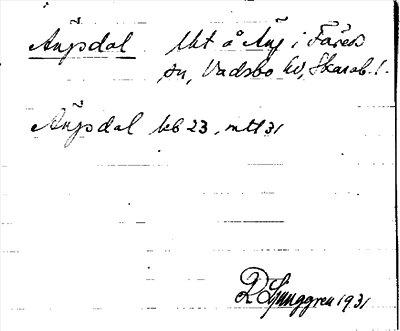 Ängsdal lht å Äng i Färeds
sn, Vadsbo hd, Skarab. l.
Ängsdal kb 23, mtl 31
R Ljunggren 1931